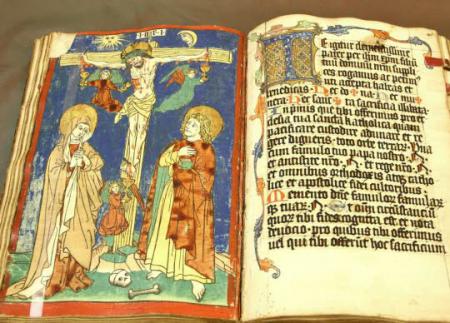 INRI
Te igitur clementissime
pater per ihm xpm filiū
tuū dominū nrm supplices
rogamus ac petimus
uti accepta habeas et
benedicas Hec ✠ dona Hec ✠ munera
Hec ✠ sancta sacrificia illibata
In primis que tibi offerimus pro ecclesia
tua sancta catholica quam
pacificare custodire adunare et regere
digneris toto orbe terrarum
una cum famulo tuo papa nostro N
et antistite nrō N et rege nrō N
et omnibus orthodoxis atque catholice
et apostolice fidei cultoribus
Memento dñe famulorum famularumque
tuarum N et oīm circumstantium
quorum tibi fides cognita est et nota
devotio pro quibus tibi offerimus
vel qui tibi offerūt hoc sacrificium